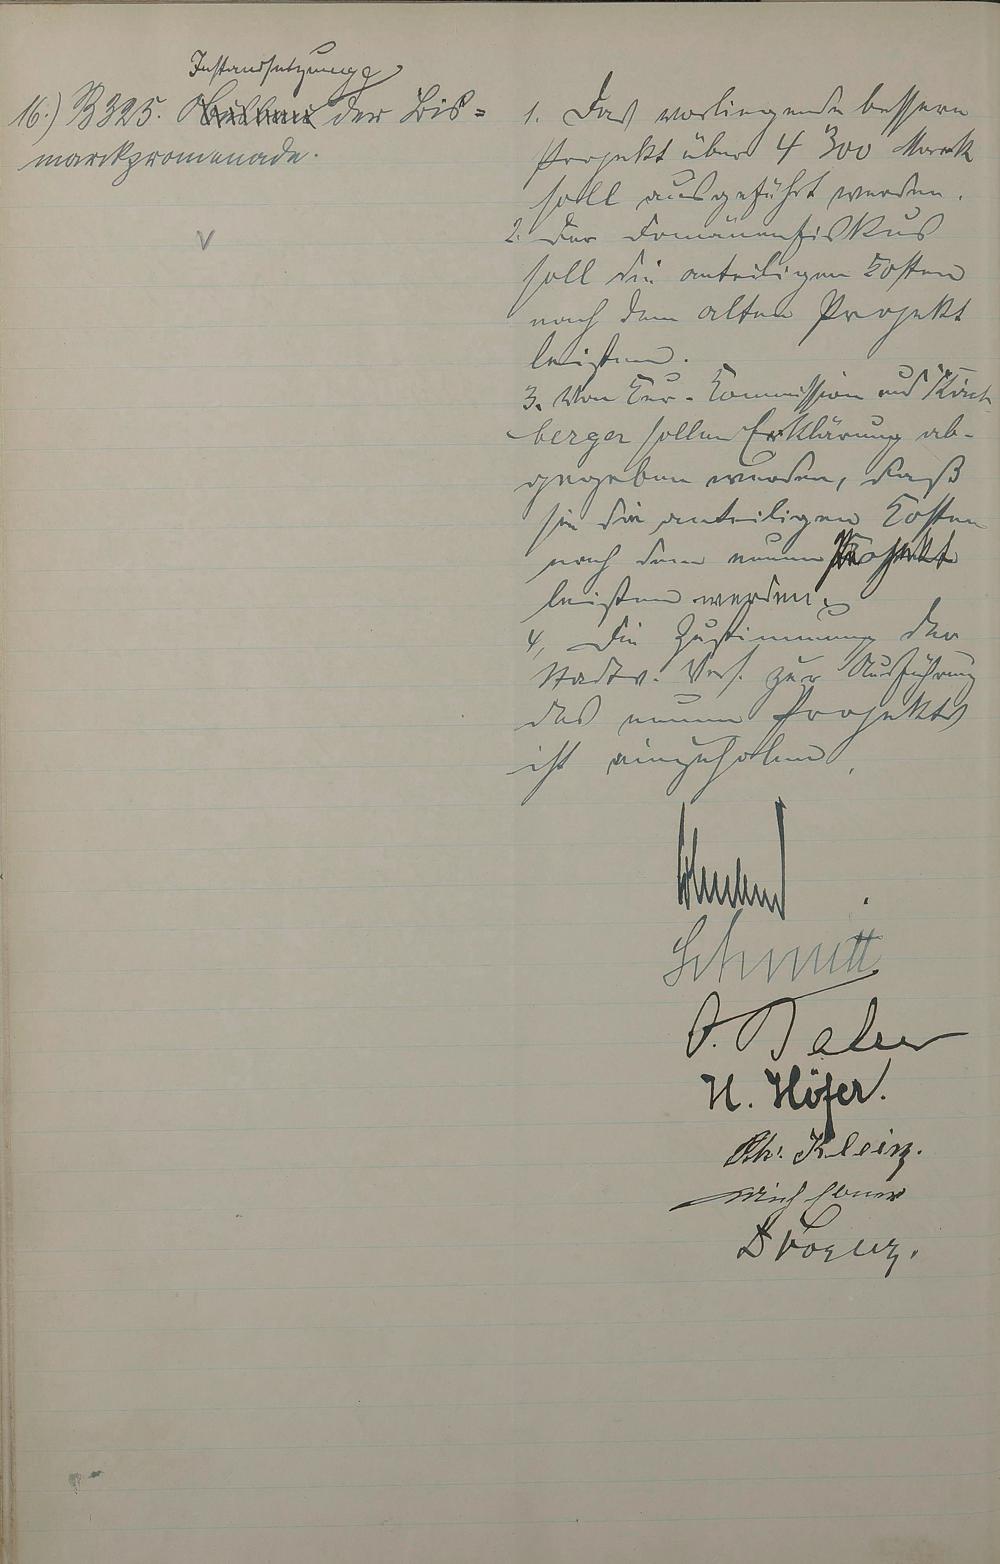 Instandsetzung
16.) B 325. der Bis=
marckpromenade.
1. Das vorliegende bessere
Projekt über 4 300 Mark
soll ausgeführt werden.
2. Der Domänenfiskus
soll die anteiligen Kosten
nach dem alten Projekt
leisten.
3. Von Kur-Kommission und
berger sollen Erklärung ab-
gegeben werden, daß
sie die anteiligen Kosten
nach dem neuen Projekt
leisten werden.
4, Die Zustimmung der
Stadtv. Vers. zur Ausführung
des neuen Projekts
ist einzuholen.
Schmitt
H. Höfer.
Ph. Klein.